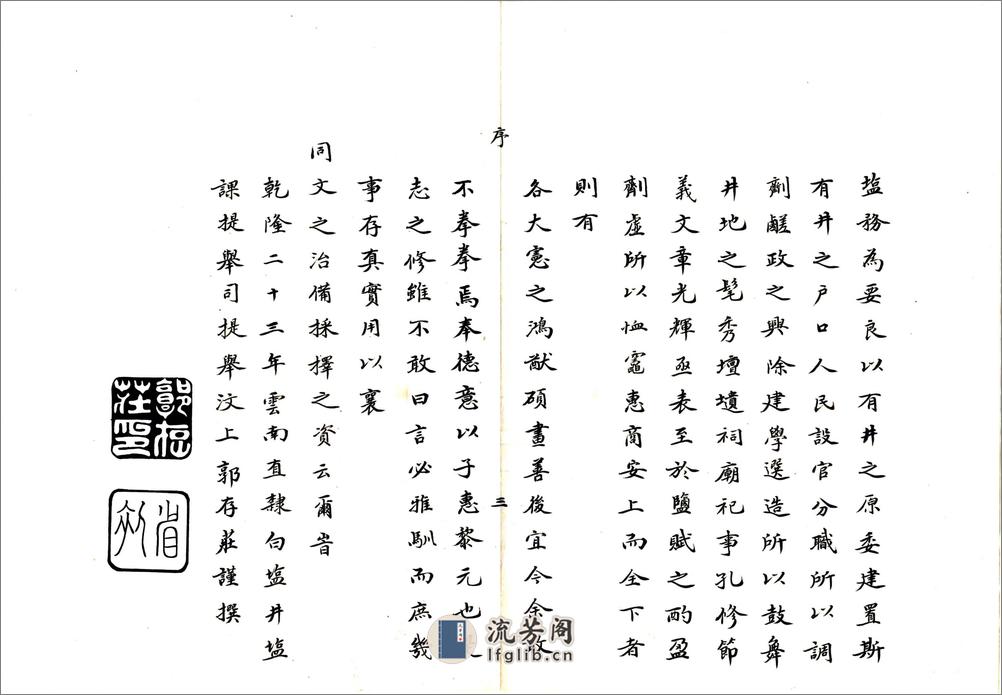 塩務為要良以有井之原委建置斯
有井之户口人民設官分職所以調
劑鹺政之興除建學選造所以鼓舞
井地之髦秀壇墳祠廟祀事孔修節
義文章光輝亟表至於鹽賦之酌盈
劑虛所以恤竈惠商安上而全下者
則有
各大憲之鴻猷碩畫善後宜今余敢
不拳拳焉奉德意以子惠黎元也
志之修雖不敢曰言必雅馴而庶幾
事存真實用以襄
同文之治備採擇之資云爾旹
乾隆二十三年雲南直隸白塩井塩
課提舉司提舉汶上郭存莊謹撰
序
三
郭存
莊印
省
流芳阁
lfglib.cn